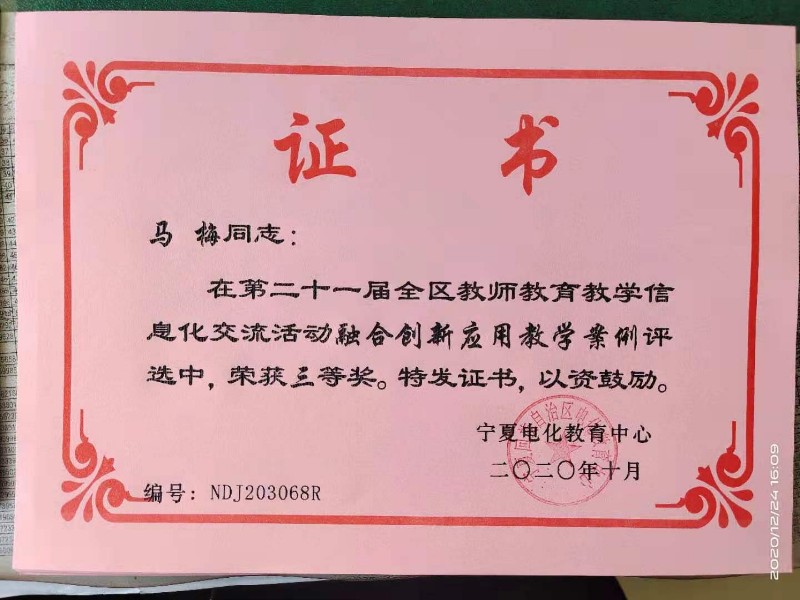 证 书
马 梅同志：
在第二十一届全区教师教育教学信
息化交流活动融合创新应用教学案例评
选中，荣获三等奖。特发证书，以资鼓励。
宁夏电化教育中心
二〇二〇年十月
编号：NDJ203068R
2020/12/24 16:09